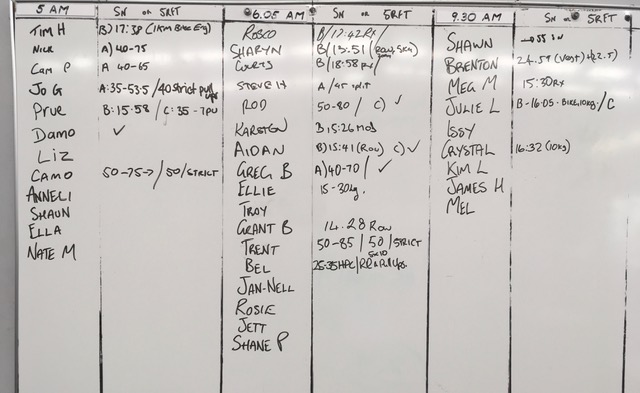 5 AM SN or 5RFT
TIM H B) 17:38 (1KM Bike Erg)
NICK A) 40-75
Cam P A 40-65
Jo G A:35-53.5/40 strict pull ups
PRUE B:15:58 / C:35-7PU
DAMO ✓
LIZ
CAMO 50-75→/50/STRICT
ANNELI
SHAUN
ELLA
NATE M
6.05 AM SN or 5RFT
ROSCO B/17:42 RX/
SHARYN B/15:51 (Row, 5kg)
CURTS B/18:58 RX/
STEVE H A/
ROD 50-80 / C) ✓
KARSTEN B 15:26 Mod
AIDAN B)15:41 (Row) C) ✓
GREG B A)40-70 / ✓
ELLIE 15-30kg.
TROY
GRANT B 14.28 Row
TRENT 50-85 / 50 / STRICT
BEL 25-35HPC/ 5x10 Pullups.
JAN-NELL
ROSIE
JETT
SHANE P
9.30 AM SN or 5RFT
SHAWN → 55 SN
BRENTON 24.59 (Vest)
MEG M 15:30 RX
JULIE L B-16:05. BIKE 10kg / C
ISSY
CRYSTAL 16:32 (10kg)
KIM L
JAMES H
MEL